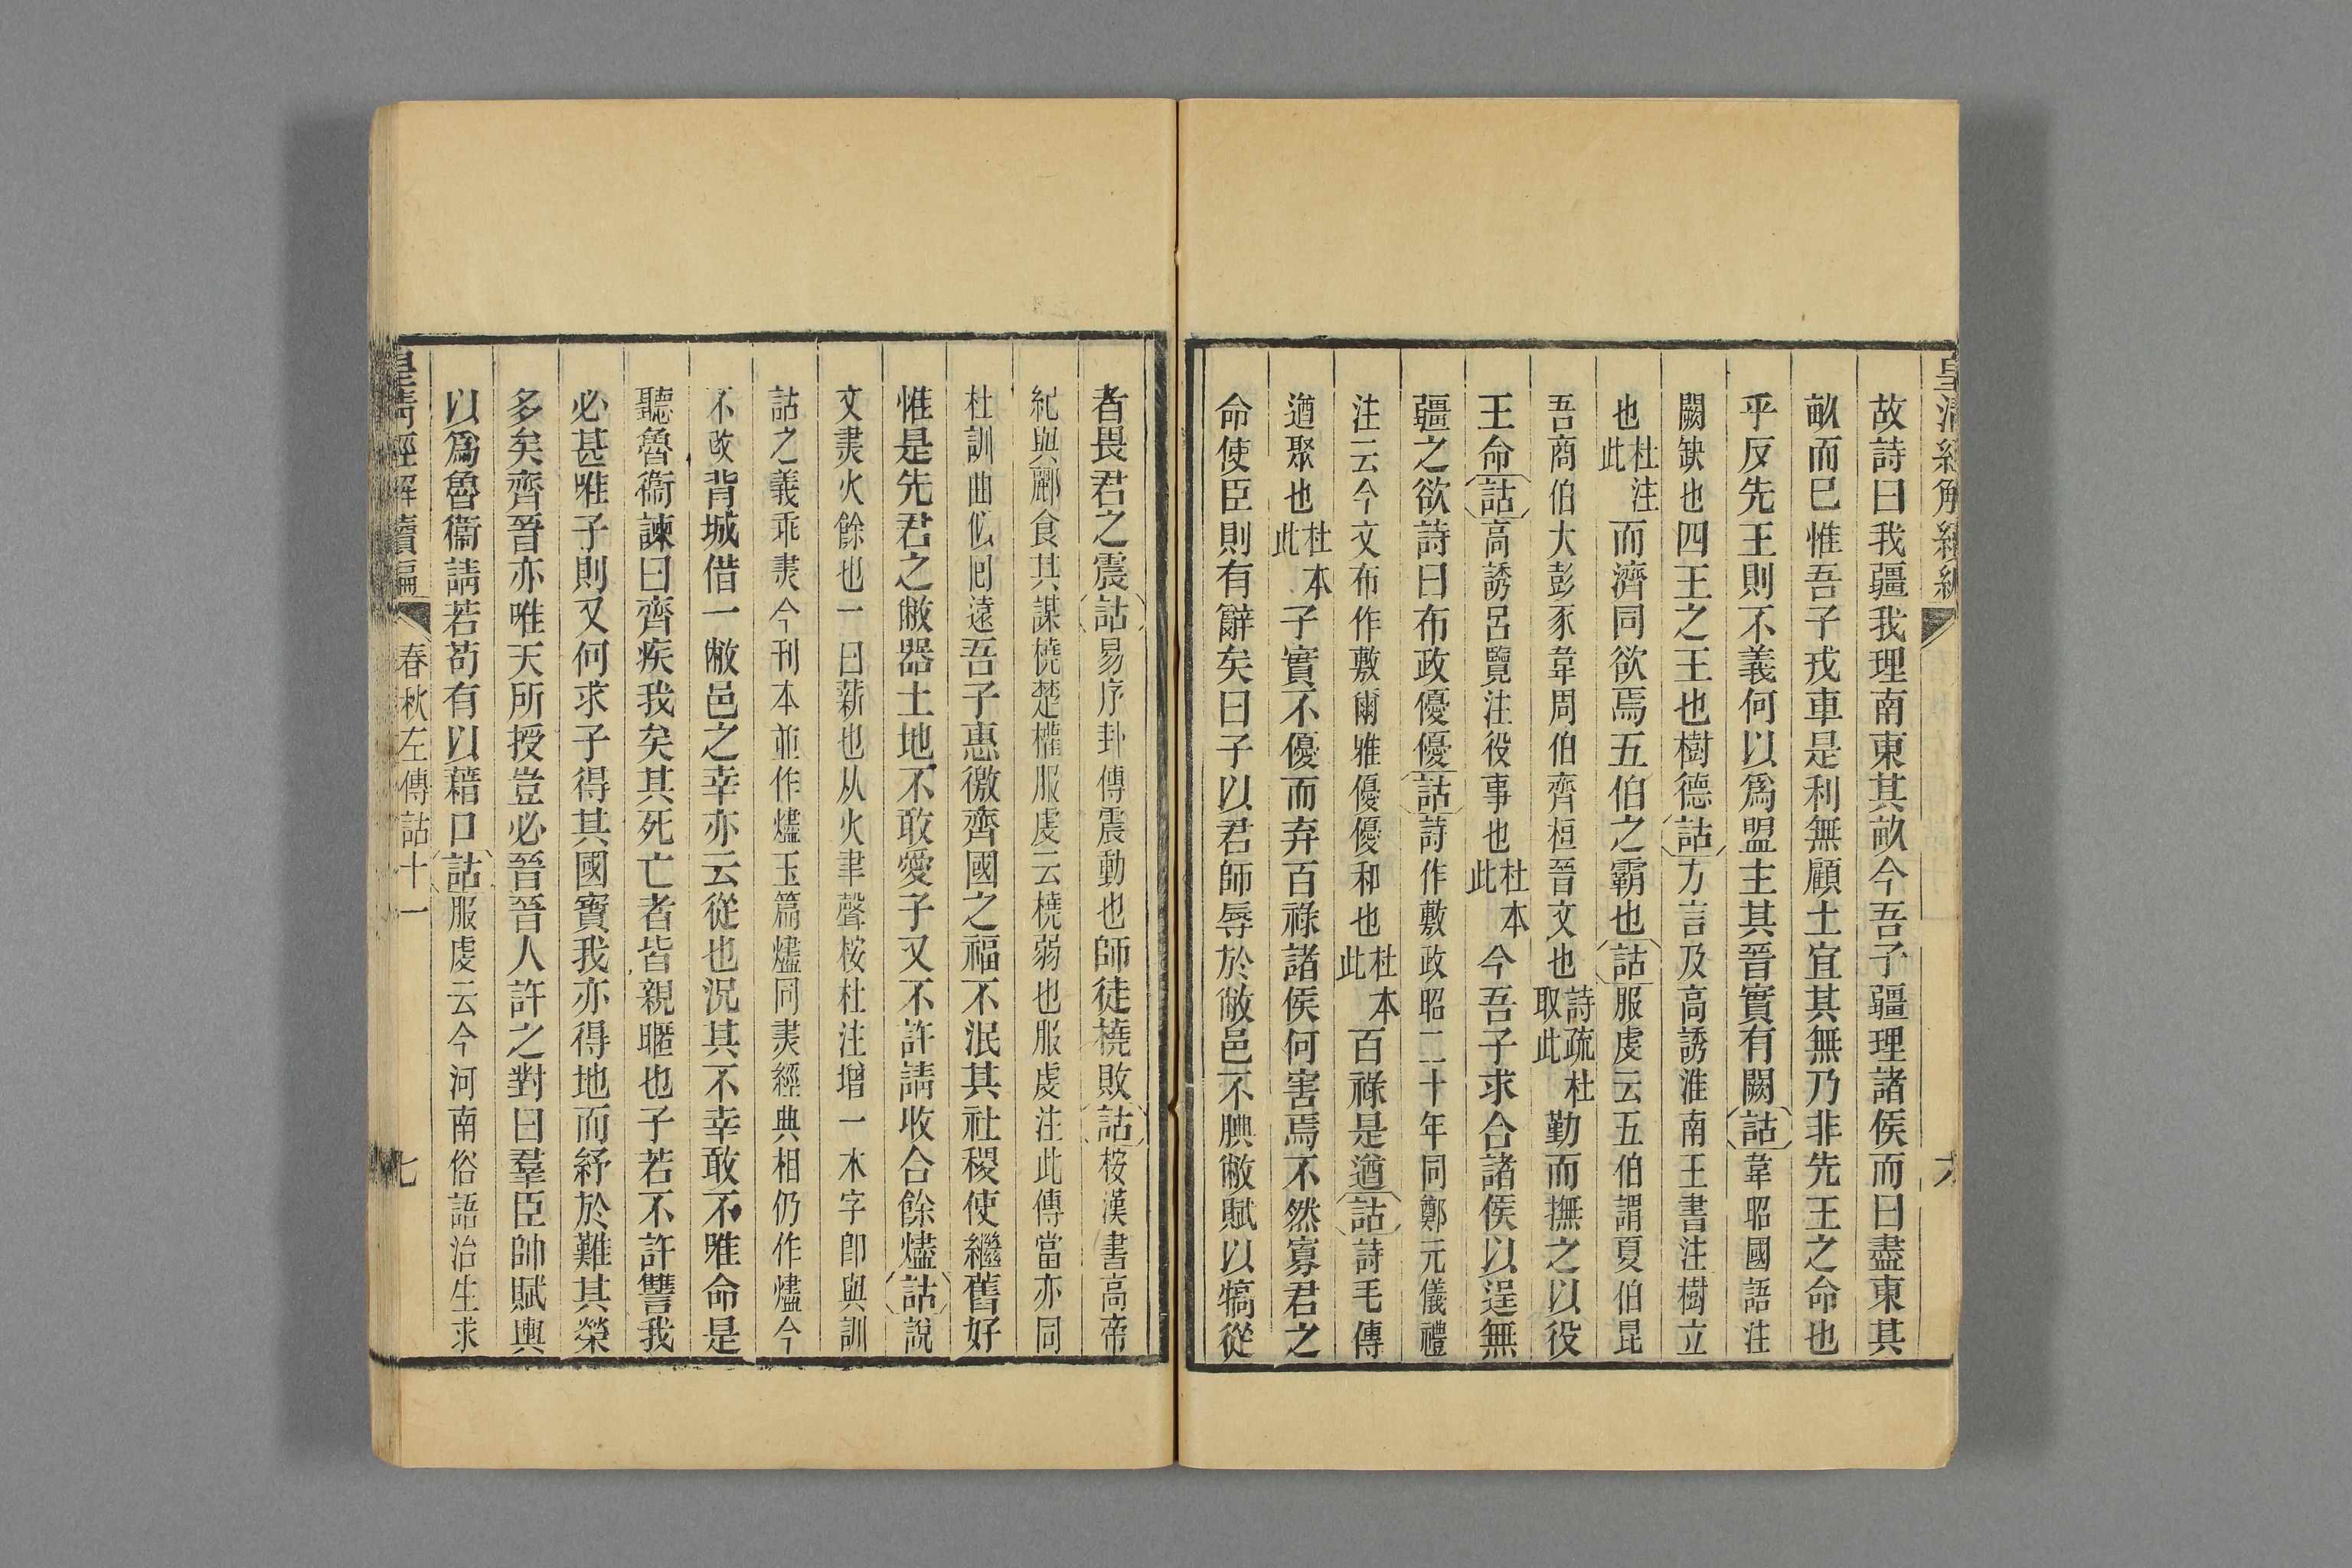 皇清經解續編
六
故詩曰我疆我理南東其畝今吾子疆理諸侯而曰盡東其
畝而已惟吾子戎車是利無顧土宜其無乃非先王之命也
乎反先王則不義何以爲盟主其晉實有闕詁韋昭國語注
闕缺也四王之王也樹德詁方言及高誘淮南王書注樹立
也杜注此而濟同欲焉五伯之霸也詁服虔云五伯謂夏伯昆
吾商伯大彭豕韋周伯齊桓晉文也詩疏杜取此勤而撫之以役
王命詁高誘呂覽注役事也杜本此今吾子求合諸侯以逞無
疆之欲詩曰布政優優詁詩作敷政昭二十年同鄭元儀禮
注云今文布作敷爾雅優優和也杜本此百祿是遒詁詩毛傳
遒聚也杜本此子實不優而弃百祿諸侯何害焉不然寡君之
命使臣則有辭矣曰子以君師辱於敝邑不腆敝賦以犒從
者畏君之震詁易序卦傳震動也師徒橈敗詁桉漢書高帝
紀與酈食其謀橈楚權服虔云橈弱也服虔注此傳當亦同
杜訓曲似囘遠吾子惠徼齊國之福不泯其社稷使繼舊好
惟是先君之敝器土地不敢愛子又不許請收合餘燼詁說
文㶳火餘也一曰薪也从火聿聲桉杜注增一木字卽與訓
詁之義乖㶳今刊本並作燼玉篇燼同㶳經典相仍作燼今
不改背城借一敝邑之幸亦云從也況其不幸敢不唯命是
聽魯衞諫曰齊疾我矣其死亡者皆親暱也子若不許讐我
必甚唯子則又何求子得其國寶我亦得地而紓於難其榮
多矣齊晉亦唯天所授豈必晉晉人許之對曰羣臣帥賦輿
以爲魯衞請若苟有以藉口詁服虔云今河南俗語治生求
皇清經解續編
春秋左傳詁十一
七